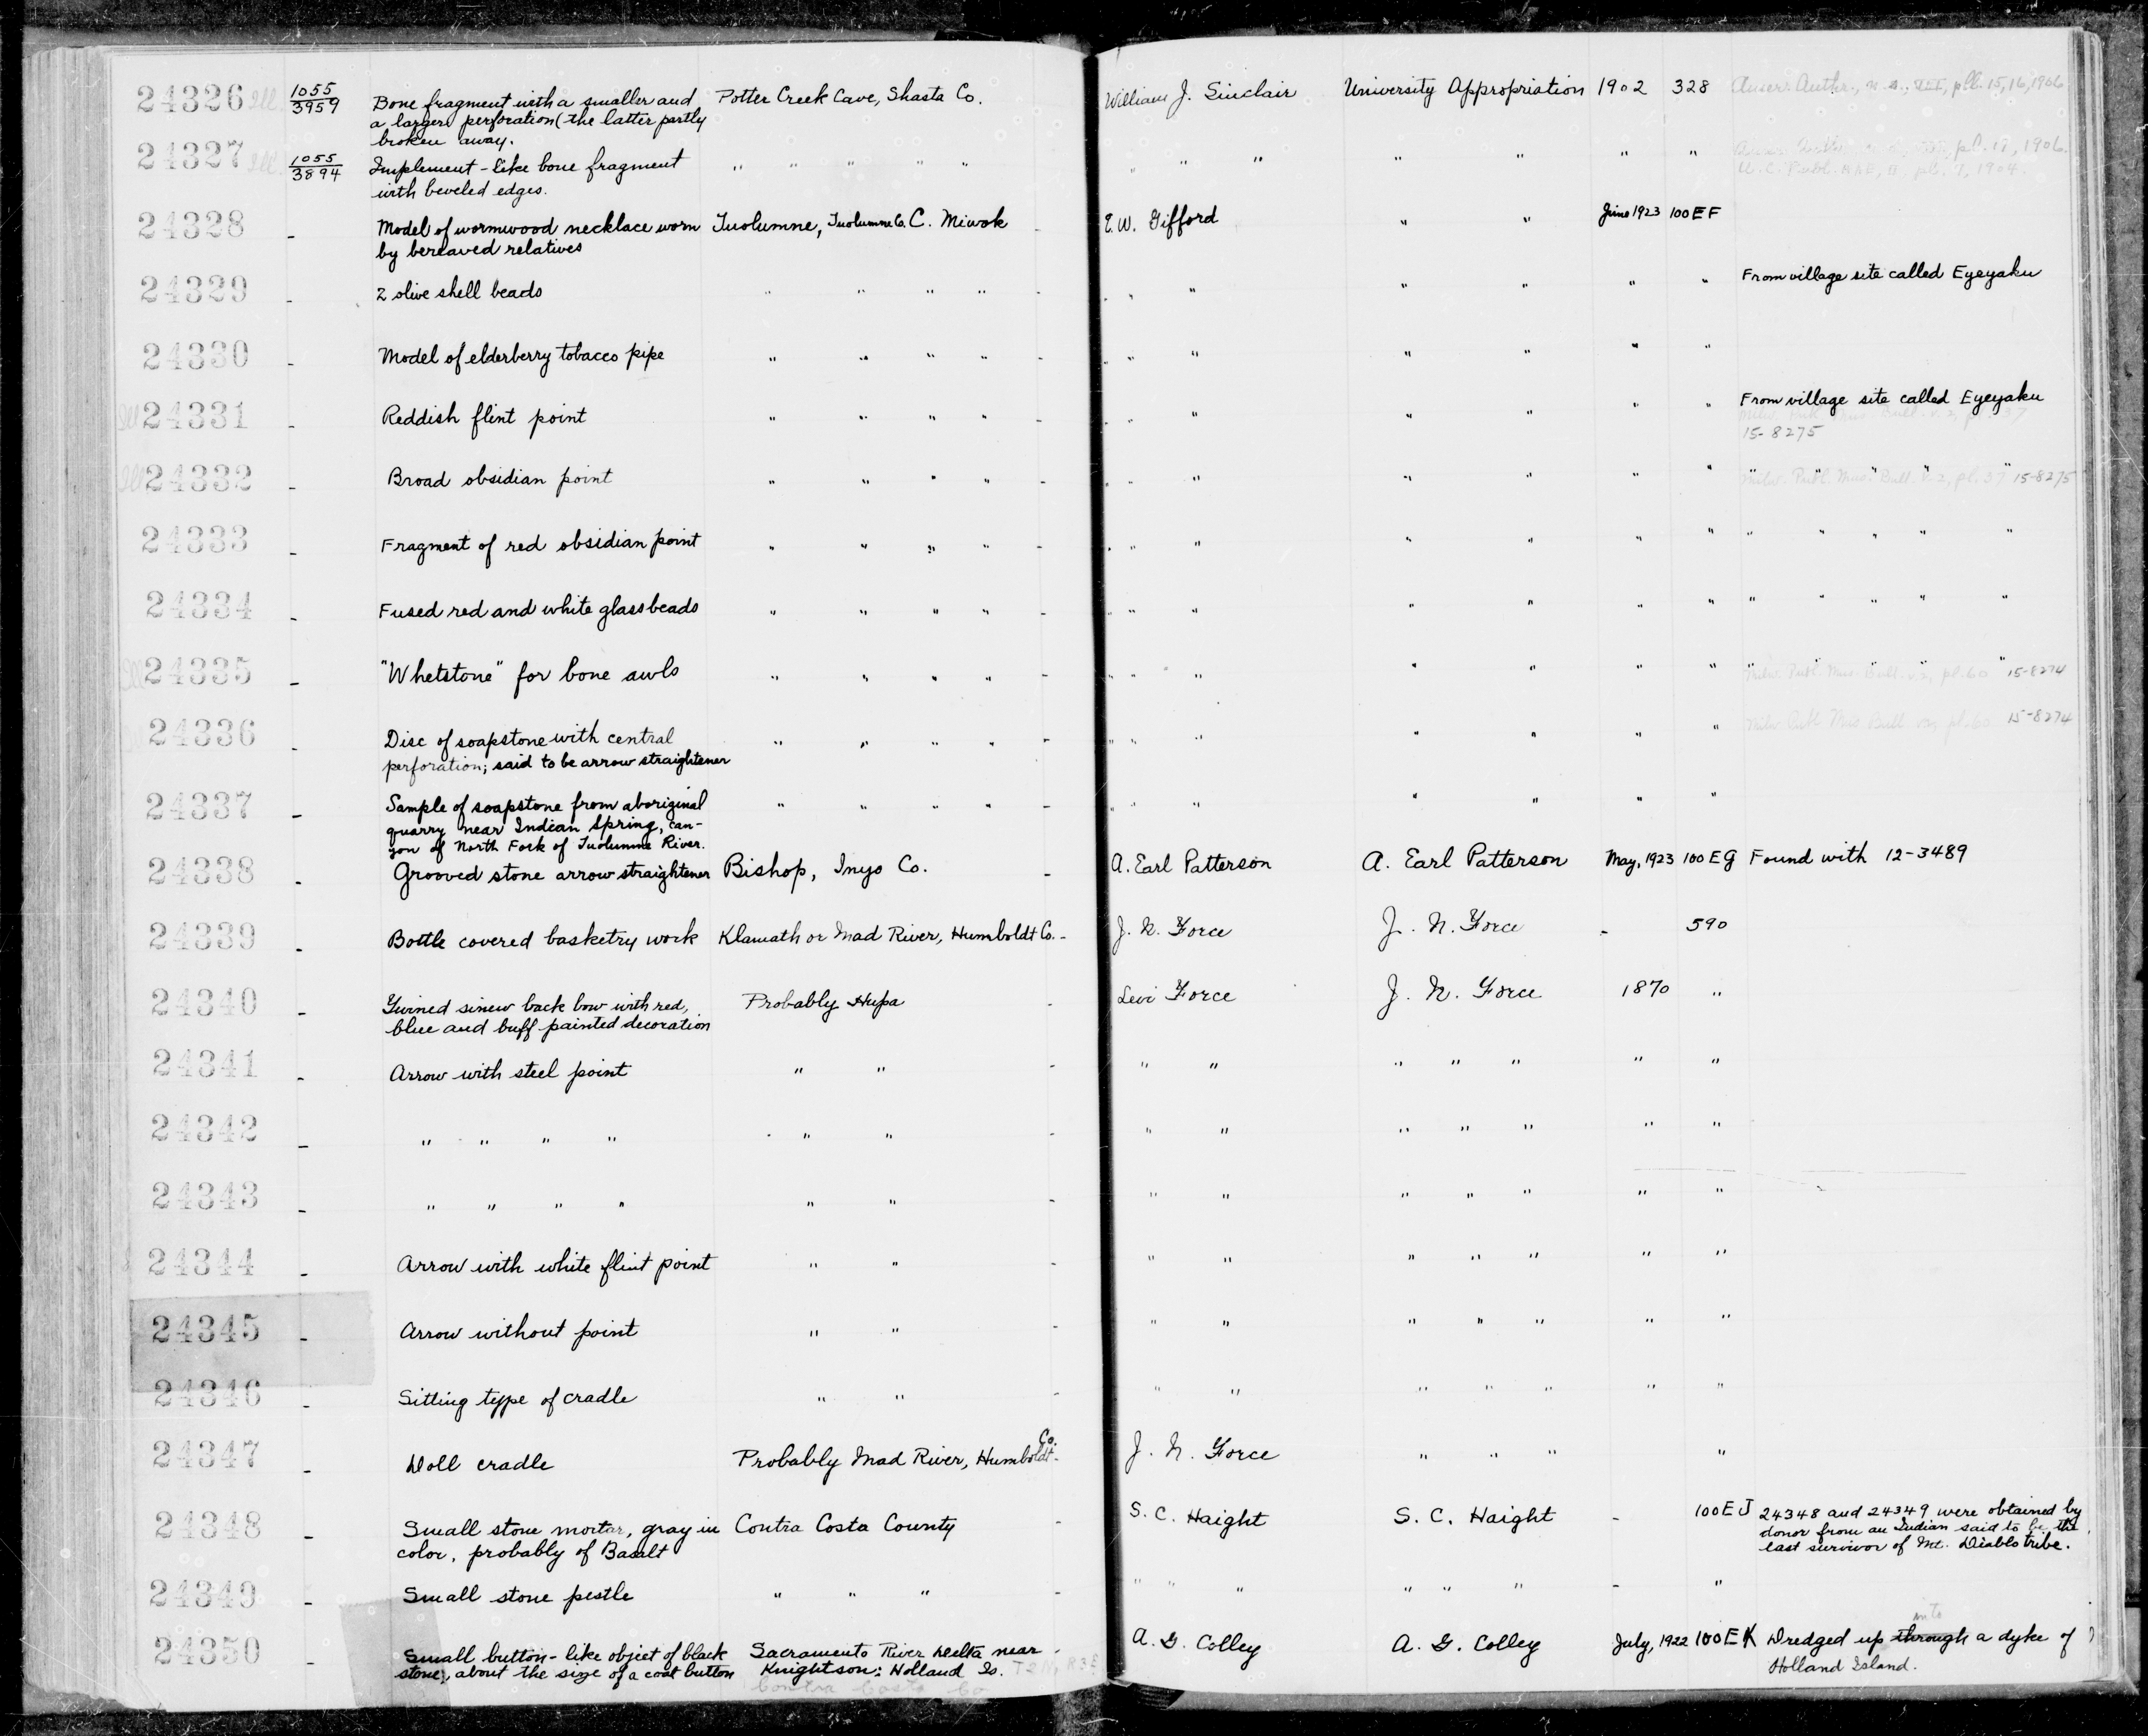 24326 Ill. 1055/3959 Bone fragment with a smaller and Potter Creek Cave, Shasta Co. William J. Sinclair University Appropriation 1902 328 Amer. Anthr., n.s., VII, pll. 15, 16, 1906
a larger perforation (the latter partly
broken away.
24327 Ill. 1055/3894 Implement-like bone fragment " " " " " " " " " " " " pl. 17, 1906.
with beveled edges. U.C. Publ. AAE, II, pl. 7, 1904.
24328 - Model of wormwood necklace worn Tuolumne, Tuolumne Co. C. Miwok - E.W. Gifford " " June 1923 100EF
by bereaved relatives
24329 - 2 olive shell beads " " " " - " " " " " " From village site called Eyeyaku
24330 - Model of elderberry tobacco pipe " " " " - " " " " " "
Ill 24331 - Reddish flint point " " " " - " " " " " " From village site called Eyeyaku
15-8275
Ill 24332 - Broad obsidian point " " " " - " " " " " " " " " " " Milw. Publ. Mus. Bull. v. 2, pl. 37 15-8275
24333 - Fragment of red obsidian point " " " " - " " " " " " " " " " "
24334 - Fused red and white glass beads " " " " - " " " " " " " " " " "
Ill 24335 - "Whetstone" for bone awls " " " " - " " " " " " " " " " " Milw. Publ. Mus. Bull. v. 2, pl. 60 15-8274
24336 - Disc of soapstone with central " " " " - " " " " " " Milw. Publ. Mus. Bull. pl. 60 15-8274
perforation; said to be arrow straightener
24337 - Sample of soapstone from aboriginal " " " " - " " " " " "
quarry near Indian Spring, can-
yon of North Fork of Tuolumne River.
24338 Grooved stone arrow straightener Bishop, Inyo Co. - A. Earl Patterson A. Earl Patterson May, 1923 100EG Found with 12-3489
24339 - Bottle covered basketry work Klamath or Mad River, Humboldt Co. - J. N. Force J. N. Force - 590
24340 - Twined sinew back bow with red, Probably Hupa - Levi Force J. N. Force 1870 "
blue and buff painted decoration
24341 - Arrow with steel point " " - " " " " " " "
24342 - " " " " " " - " " " " " " "
24343 - " " " " " " - " " " " " " "
24344 - Arrow with white flint point " " - " " " " " " "
24345 - Arrow without point " " - " " " " " " "
24346 - Sitting type of cradle " " - " " " " " " "
24347 - Doll cradle Probably Mad River, Humboldt Co. - J. N. Force " " " "
24348 - Small stone mortar, gray in Contra Costa County - S. C. Haight S. C. Haight - 100EJ 24348 and 24349 were obtained by
color, probably of Basalt donor from an Indian said to be the
last survivor of Mt. Diablo tribe.
24349 - Small stone pestle " " " - " " " " " " - "
24350 - Small button-like object of black Sacramento River Delta near - A. G. Colley A. G. Colley July, 1922 100EK Dredged up through into a dyke of
stone, about the size of a coat button Knightson: Holland Is. T2N, R3E Holland Island.
Contra Costa Co